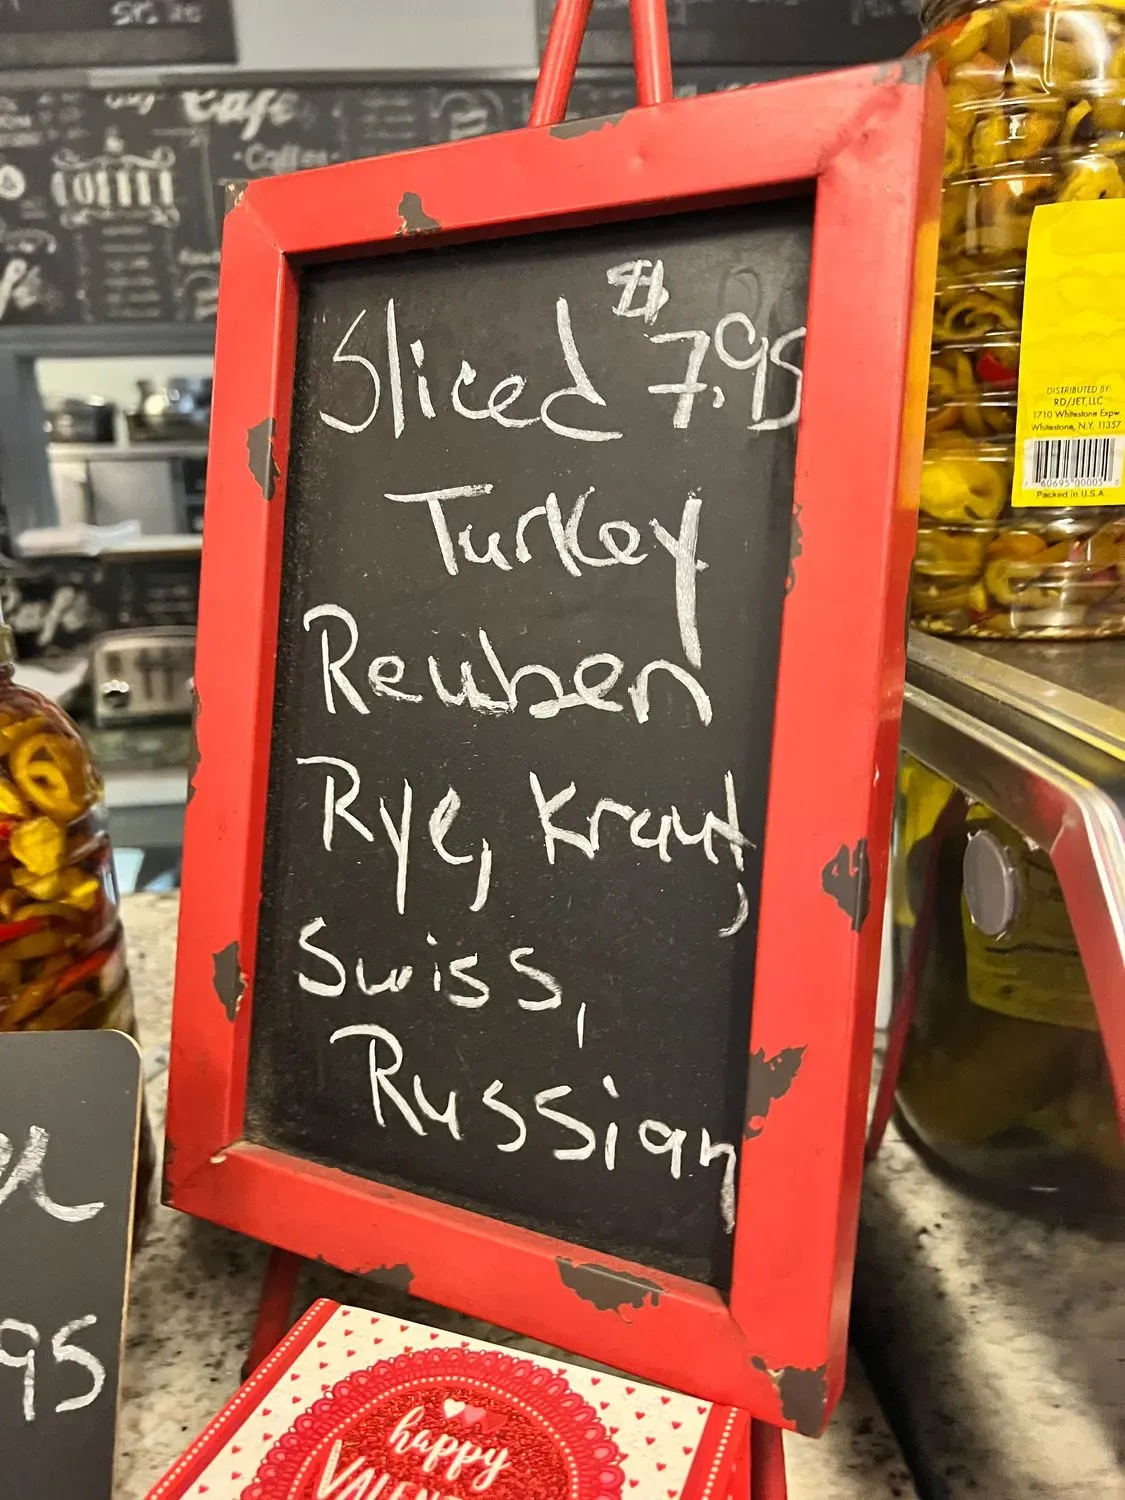 Café
Coffee
COFFEE
Café
$
Sliced 7.95
Turkey
Reuben
Rye, Kraut,
Swiss,
Russian
DISTRIBUTED BY:
RD/JET, LLC
1710 Whitestone Expw.
Whitestone, N.Y. 11357
Packed in U.S.A.
95
happy